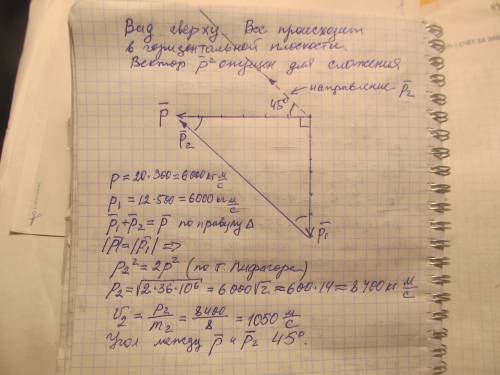 Вид сверху. Все происходит
в горизонтальной плоскости.
Вектор p̄² опущен для сложения
направление p̄₂
45°
p̄
p̄₂
p̄₁
p = 20·300 = 6000 кг м/с
p₁ = 12·500 = 6000 кг м/с
p̄₁ + p̄₂ = p̄ по правилу Δ
|p̄| = |p̄₁| ⇒
p₂² = 2p² (по т. Пифагора)
p₂ = √2·36·10⁶ = 6000√2 = 600·14 = 8400 кг м/с
v₂ = p₂/m₂ = 8400/8 = 1050 м/с
Угол между p̄ и p̄₂ 45°.